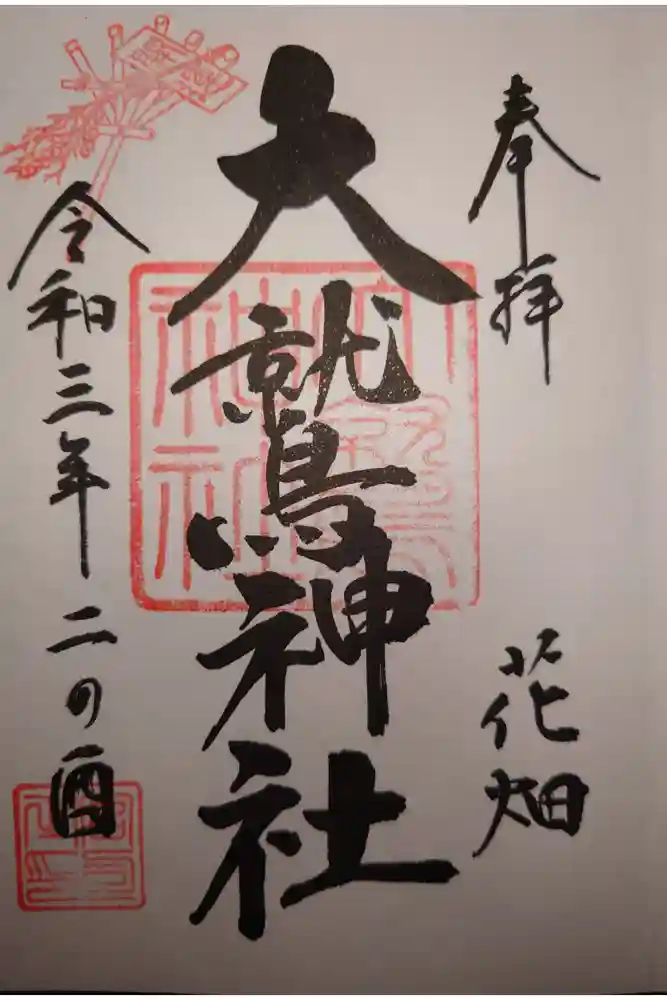 奉拝
花畑
大鷲神社
令和三年二の酉